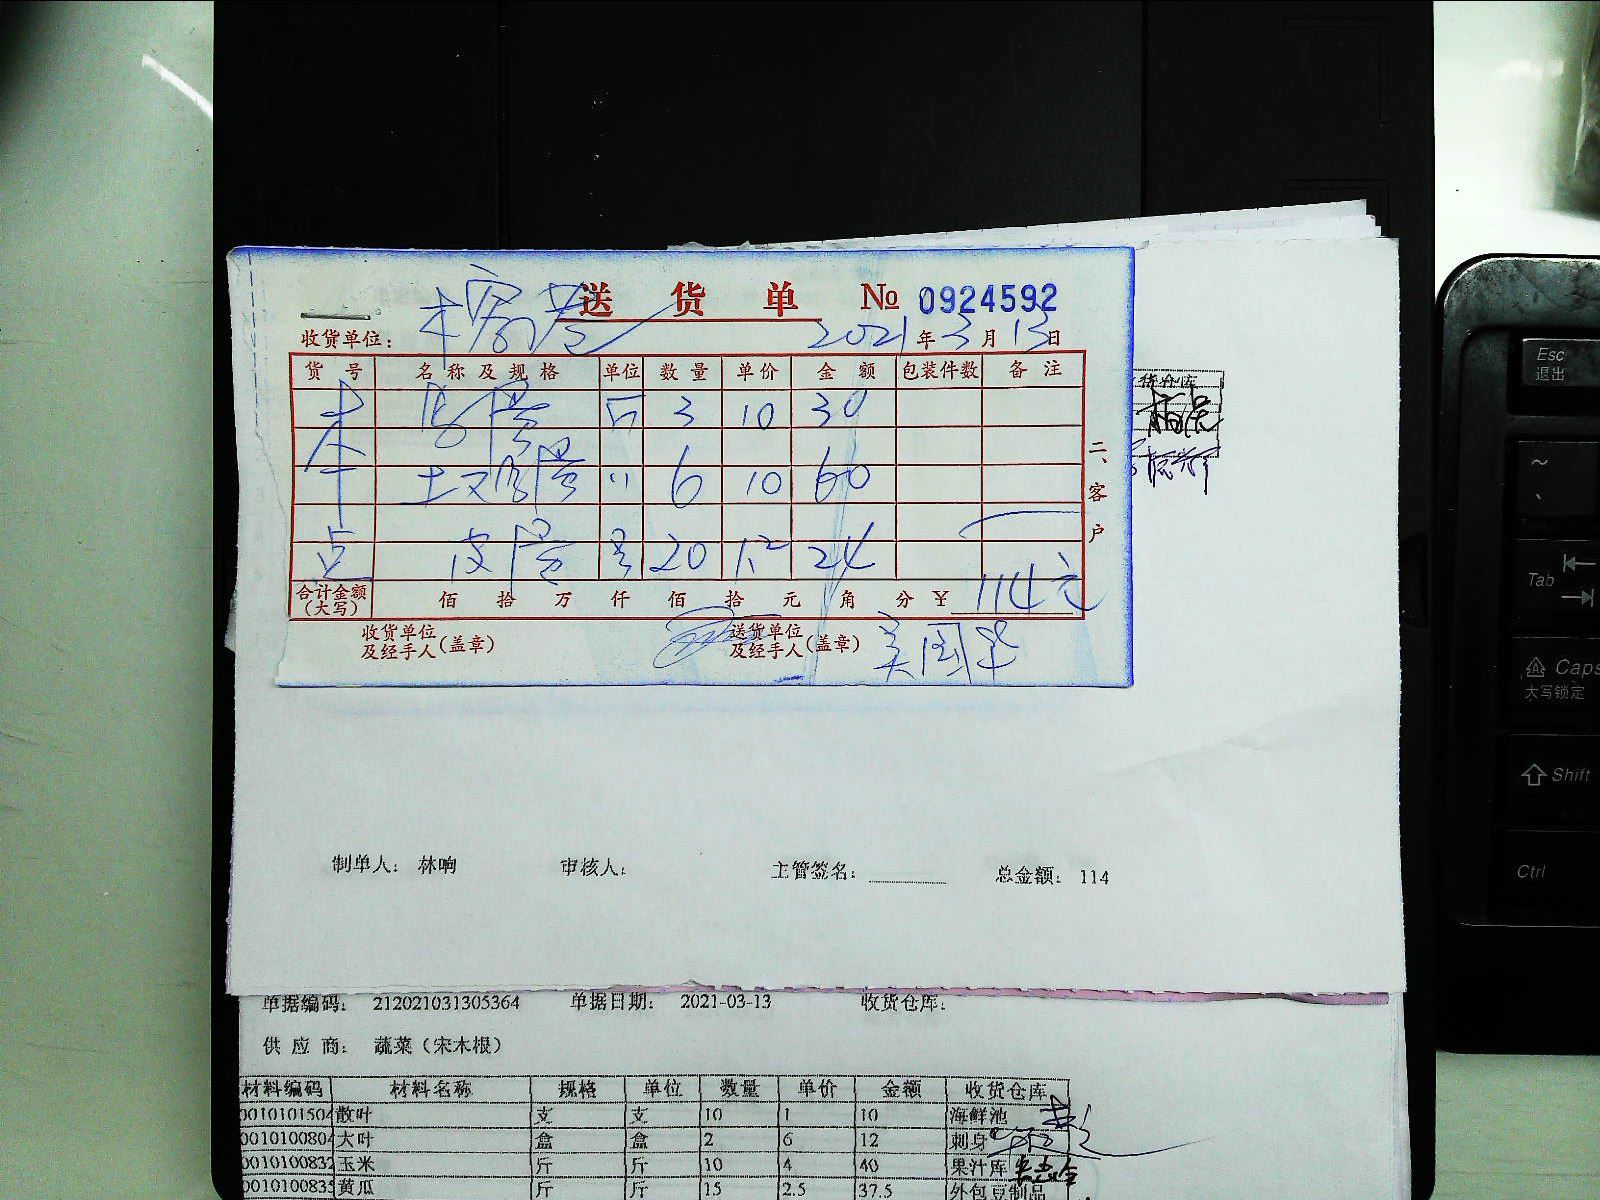 送 货 单 № 0924592
收货单位: 2021 年 3 月 13 日
货 号 名 称 及 规 格 单位 数 量 单 价 金 额 包装件数 备 注
3 10 30
6 10 60
皮蛋 20 1.2 24
合计金额(大写) 佰 拾 万 仟 佰 拾 元 角 分 ¥ 114元
收货单位及经手人(盖章) 送货单位及经手人(盖章)
二、客户
制单人: 林响 审核人: 主管签名: 总金额: 114
单据编码: 212021031305364 单据日期: 2021-03-13 收货仓库:
供 应 商: 蔬菜(宋木根)
材料编码 材料名称 规格 单位 数量 单价 金额 收货仓库
0010101504 散叶 支 支 10 1 10 海鲜池
0010100804 大叶 盒 盒 2 6 12 刺身
0010100832 玉米 斤 斤 10 4 40 果汁库
0010100835 黄瓜 斤 斤 15 2.5 37.5 外包豆制品
Esc
退出
~
Tab
Caps
大写锁定
Shift
Ctrl